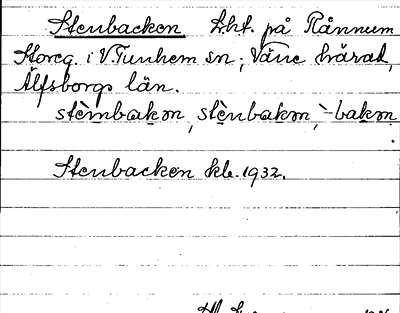 Stenbacken lht. på Rånnum
Storeg. i V. Tunhem sn; Väne härad,
Älfsborgs län.
stèmbakən, stènbakən, -bakən.
Stenbacken kb. 1932.